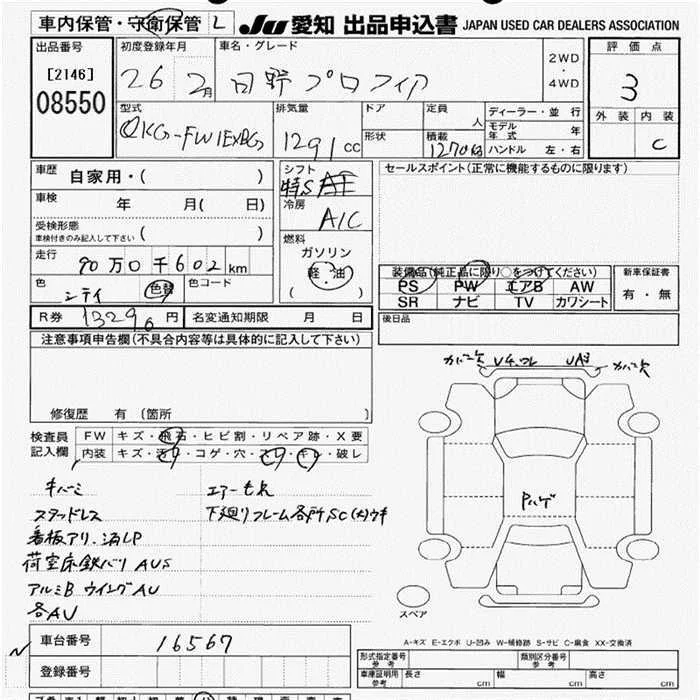 車内保管・守衛保管 L JU 愛知 出品申込書 JAPAN USED CAR DEALERS ASSOCIATION
出品番号 初度登録年月 車名・グレード 2WD・4WD 評価点
[2146] 26 2月 日野プロフィア 3
08550
型式 排気量 ドア 定員 人 ディーラー・並行 外装 内装
QKG-FW1EXBG 1291cc 形状 積載 1270kg モデル年式 年 C
ハンドル 左・右
車歴 自家用・( ) シフト セールスポイント(正常に機能するものに限ります)
車検 年 月( 日) 特S
冷房
受検形態 A/C
車検付きのみ記入して下さい ( )
燃料
走行 90万0千602km ガソリン 装備品(純正品に限り○をつけてください) 新車保証書
色 シテイ 色替 色コード 軽・油 PS PW エアB AW 有・無
( ) SR ナビ TV カワシート
R券 13296円 名変通知期限 月 日 後日品
注意事項申告欄(不具合内容等は具体的に記入して下さい)
カバー欠 カバー欠
修復歴 有 (箇所 )
検査員 FW キズ・飛石・ヒビ割・リペア跡・X要
記入欄 内装 キズ・汚れ・コゲ・穴・スレ・キレ・破レ
キバーミ エアーもれ
スタッドレス 下廻りフレーム各所SC(大)ウキ
看板アリ・済LP Pハゲ
荷室床鉄バリ AUS
アルミB ウイングAU
各AU スペア
A-キズ E-エクボ U-凹み W-補修跡 S-サビ C-腐食 XX-交換済
車台番号 16567
登録番号
形式指定番号 参考 類別区分番号 参考
車庫証明用 参考 長さ cm 幅 cm 高さ cm